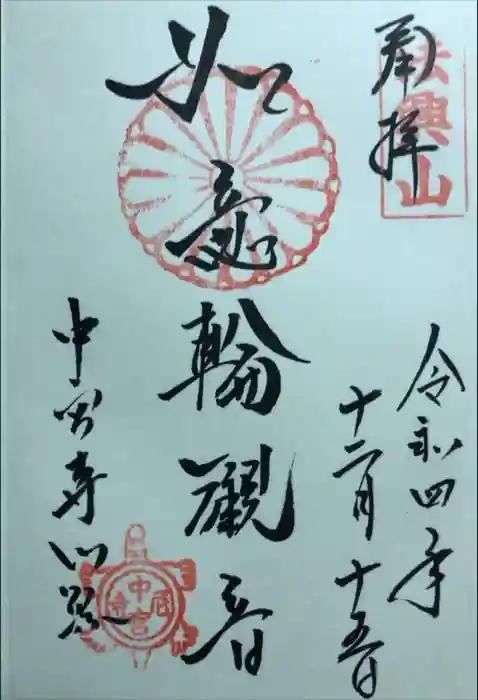 奉拝
法興山
令和四年
十二月十五日
如意輪觀音
中宮寺門跡
中宮